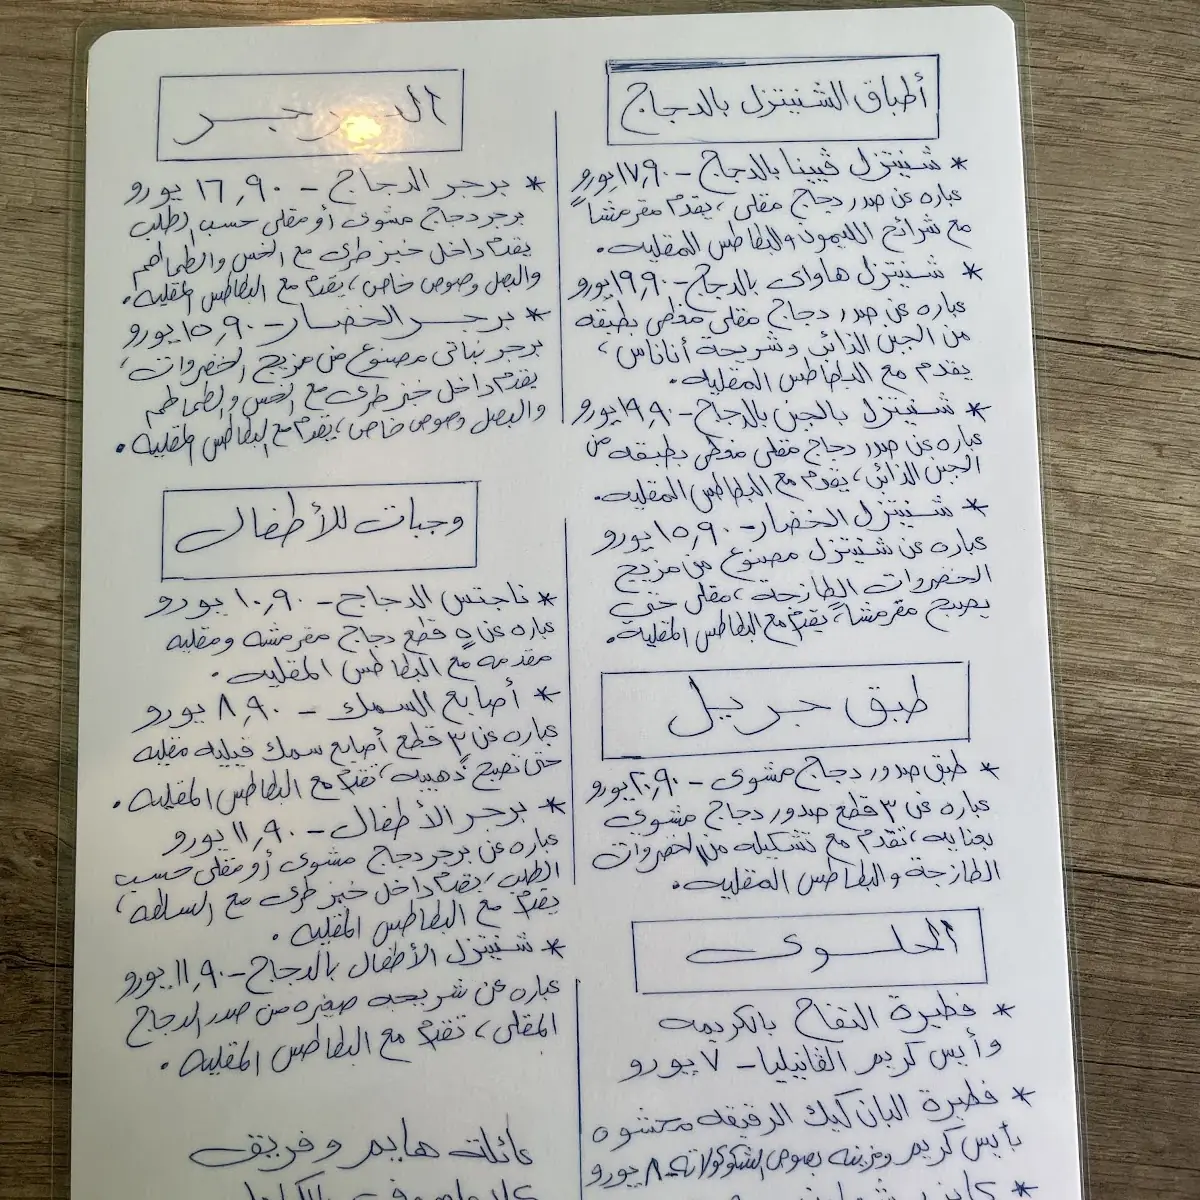 أطباق الشنيتزل بالدجاج
* شنيتزل ڤيينا بالدجاج - ١٧,٩٠ يورو
عباره عن صدر دجاج مقلى، يقدم مقرمشاً
مع شرائح الليمون والبطاطس المقليه.
* شنيتزل هاواى بالدجاج - ١٩,٩٠ يورو
عباره عن صدر دجاج مقلى مغطى بطبقه
من الجبن الذائب وشريحة أناناس،
يقدم مع البطاطس المقليه.
* شنيتزل بالجبن بالدجاج - ١٩,٩٠ يورو
عباره عن صدر دجاج مقلى مغطى بطبقه من
الجبن الذائب، يقدم مع البطاطس المقليه.
* شنيتزل الخضار - ١٥,٩٠ يورو
عباره عن شنيتزل مصنوع من مزيج
الخضروات الطازجة، مقلى حتى
يصبح مقرمشاً، يقدم مع البطاطس المقليه.
طبق جريل
* طبق صدور دجاج مشوى - ٢٠,٩٠ يورو
عباره عن ٣ قطع صدور دجاج مشوى
بعنايه، تقدم مع تشكيله من الخضروات
الطازجة والبطاطس المقليه.
الحلوى
* فطيرة التفاح بالكريمه
وأيس كريم الڤانيليا - ٧ يورو
* فطيرة البان كيك الرقيقه محشوه
بأيس كريم ومزينه بصوص الشوكولاته - ٨ يورو
البرجر
* برجر الدجاج - ١٦,٩٠ يورو
برجر دجاج مشوى أو مقلى حسب الطلب
يقدم داخل خبز طرى مع الخس والطماطم
والبصل وصوص خاص، يقدم مع البطاطس المقليه.
* برجر الخضار - ١٥,٩٠ يورو
برجر نباتى مصنوع من مزيج الخضروات،
يقدم داخل خبز طرى مع الخس والطماطم
والبصل وصوص خاص، يقدم مع البطاطس المقليه.
وجبات للأطفال
* ناجتس الدجاج - ١٠,٩٠ يورو
عباره عن ٥ قطع دجاج مقرمشه ومقليه
مقدمه مع البطاطس المقليه.
* أصابع السمك - ٨,٩٠ يورو
عباره عن ٣ قطع أصابع سمك فيليه مقليه
حتى تصبح ذهبيه، تقدم مع البطاطس المقليه.
* برجر الأطفال - ١١,٩٠ يورو
عباره عن برجر دجاج مشوى أو مقلى حسب
الطلب، يقدم داخل خبز طرى مع السلطه،
يقدم مع البطاطس المقليه.
* شنيتزل الأطفال بالدجاج - ١١,٩٠ يورو
عباره عن شريحه صغيره من صدر الدجاج
المقلى، تقدم مع البطاطس المقليه.
عائلة هايم وفريق